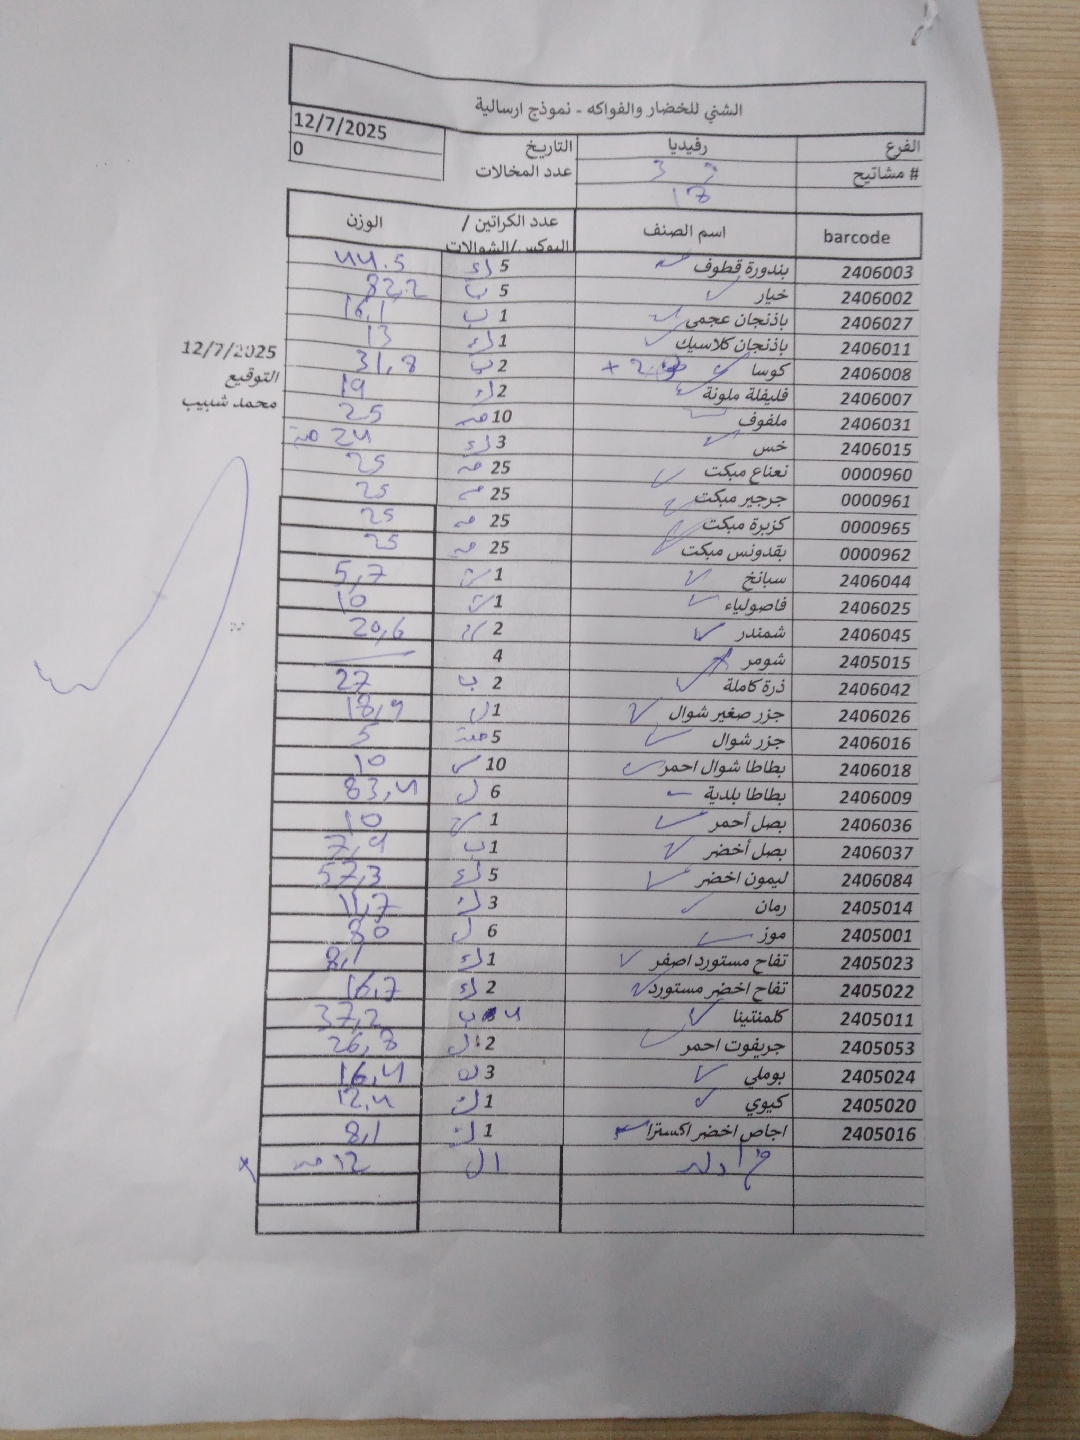 الشني للخضار والفواكه - نموذج ارسالية
الفرع رفيديا التاريخ 12/7/2025
# مشاتيح 3 عدد المخالات 0
18
barcode اسم الصنف عدد الكراتين / البوكس/الشوالات الوزن
2406003 بندورة قطوف 5 ك 44.5
2406002 خيار 5 ب 82,2
2406027 باذنجان عجمي 1 ب 16,1
2406011 باذنجان كلاسيك 1 ك 13
2406008 كوسا + 2 2 ب 31,8
2406007 فليفلة ملونة 2 ك 19
2406031 ملفوف 10 حبة 25
2406015 خس 3 ك 24 حبة
0000960 نعناع مبكت 25 حبة 25
0000961 جرجير مبكت 25 حبة 25
0000965 كزبرة مبكت 25 حبة 25
0000962 بقدونس مبكت 25 حبة 25
2406044 سبانخ 1 5,7
2406025 فاصولياء 1 10
2406045 شمندر 2 20,6
2405015 شومر 4
2406042 ذرة كاملة 2 ب 27
2406026 جزر صغير شوال 1 ل 18,9
2406016 جزر شوال 5 5
2406018 بطاطا شوال احمر 10 10
2406009 بطاطا بلدية 6 ل 83,4
2406036 بصل أحمر 1 10
2406037 بصل أخضر 1 ب 7,9
2406084 ليمون اخضر 5 ك 57,3
2405014 رمان 3 ك 11,7
2405001 موز 6 ل 80
2405023 تفاح مستورد اصفر 1 ك 8,1
2405022 تفاح اخضر مستورد 2 ك 16,7
2405011 كلمنتينا 4 ب 37,2
2405053 جريفوت احمر 2 ل 26,8
2405024 بوملي 3 16,4
2405020 كيوي 1 ك 12,4
2405016 اجاص اخضر اكسترا 1 ك 8,1
1 ل 12 حبة
12/7/2025
التوقيع
محمد شبيب